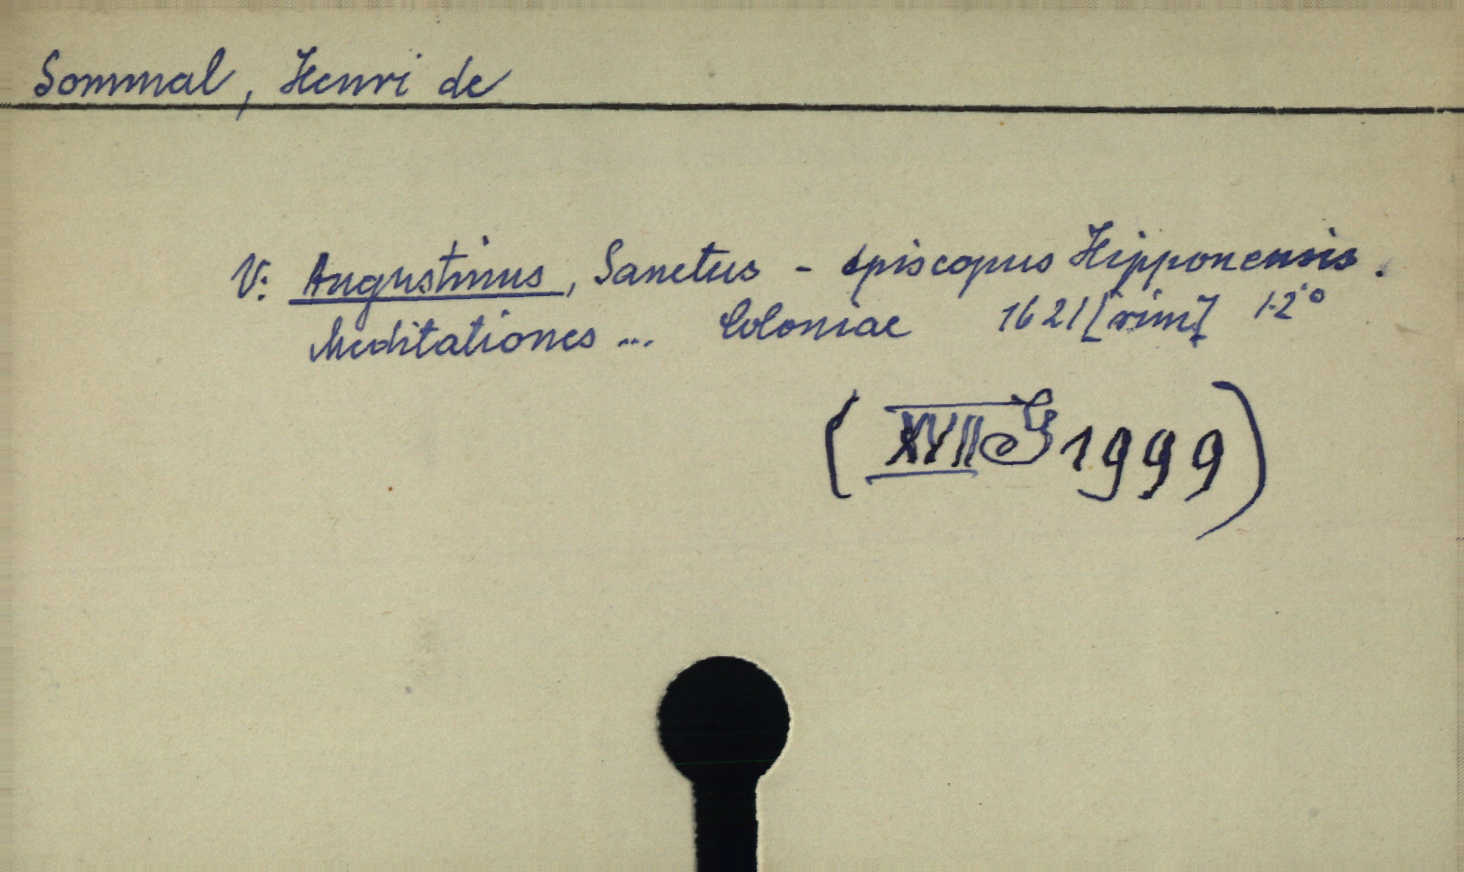 Sommal, Henri de
V: Augustinus, Sanctus - episcopus Hipponensis.
Meditationes... Coloniae 1621 [rim] 12°
(XVII 1999)